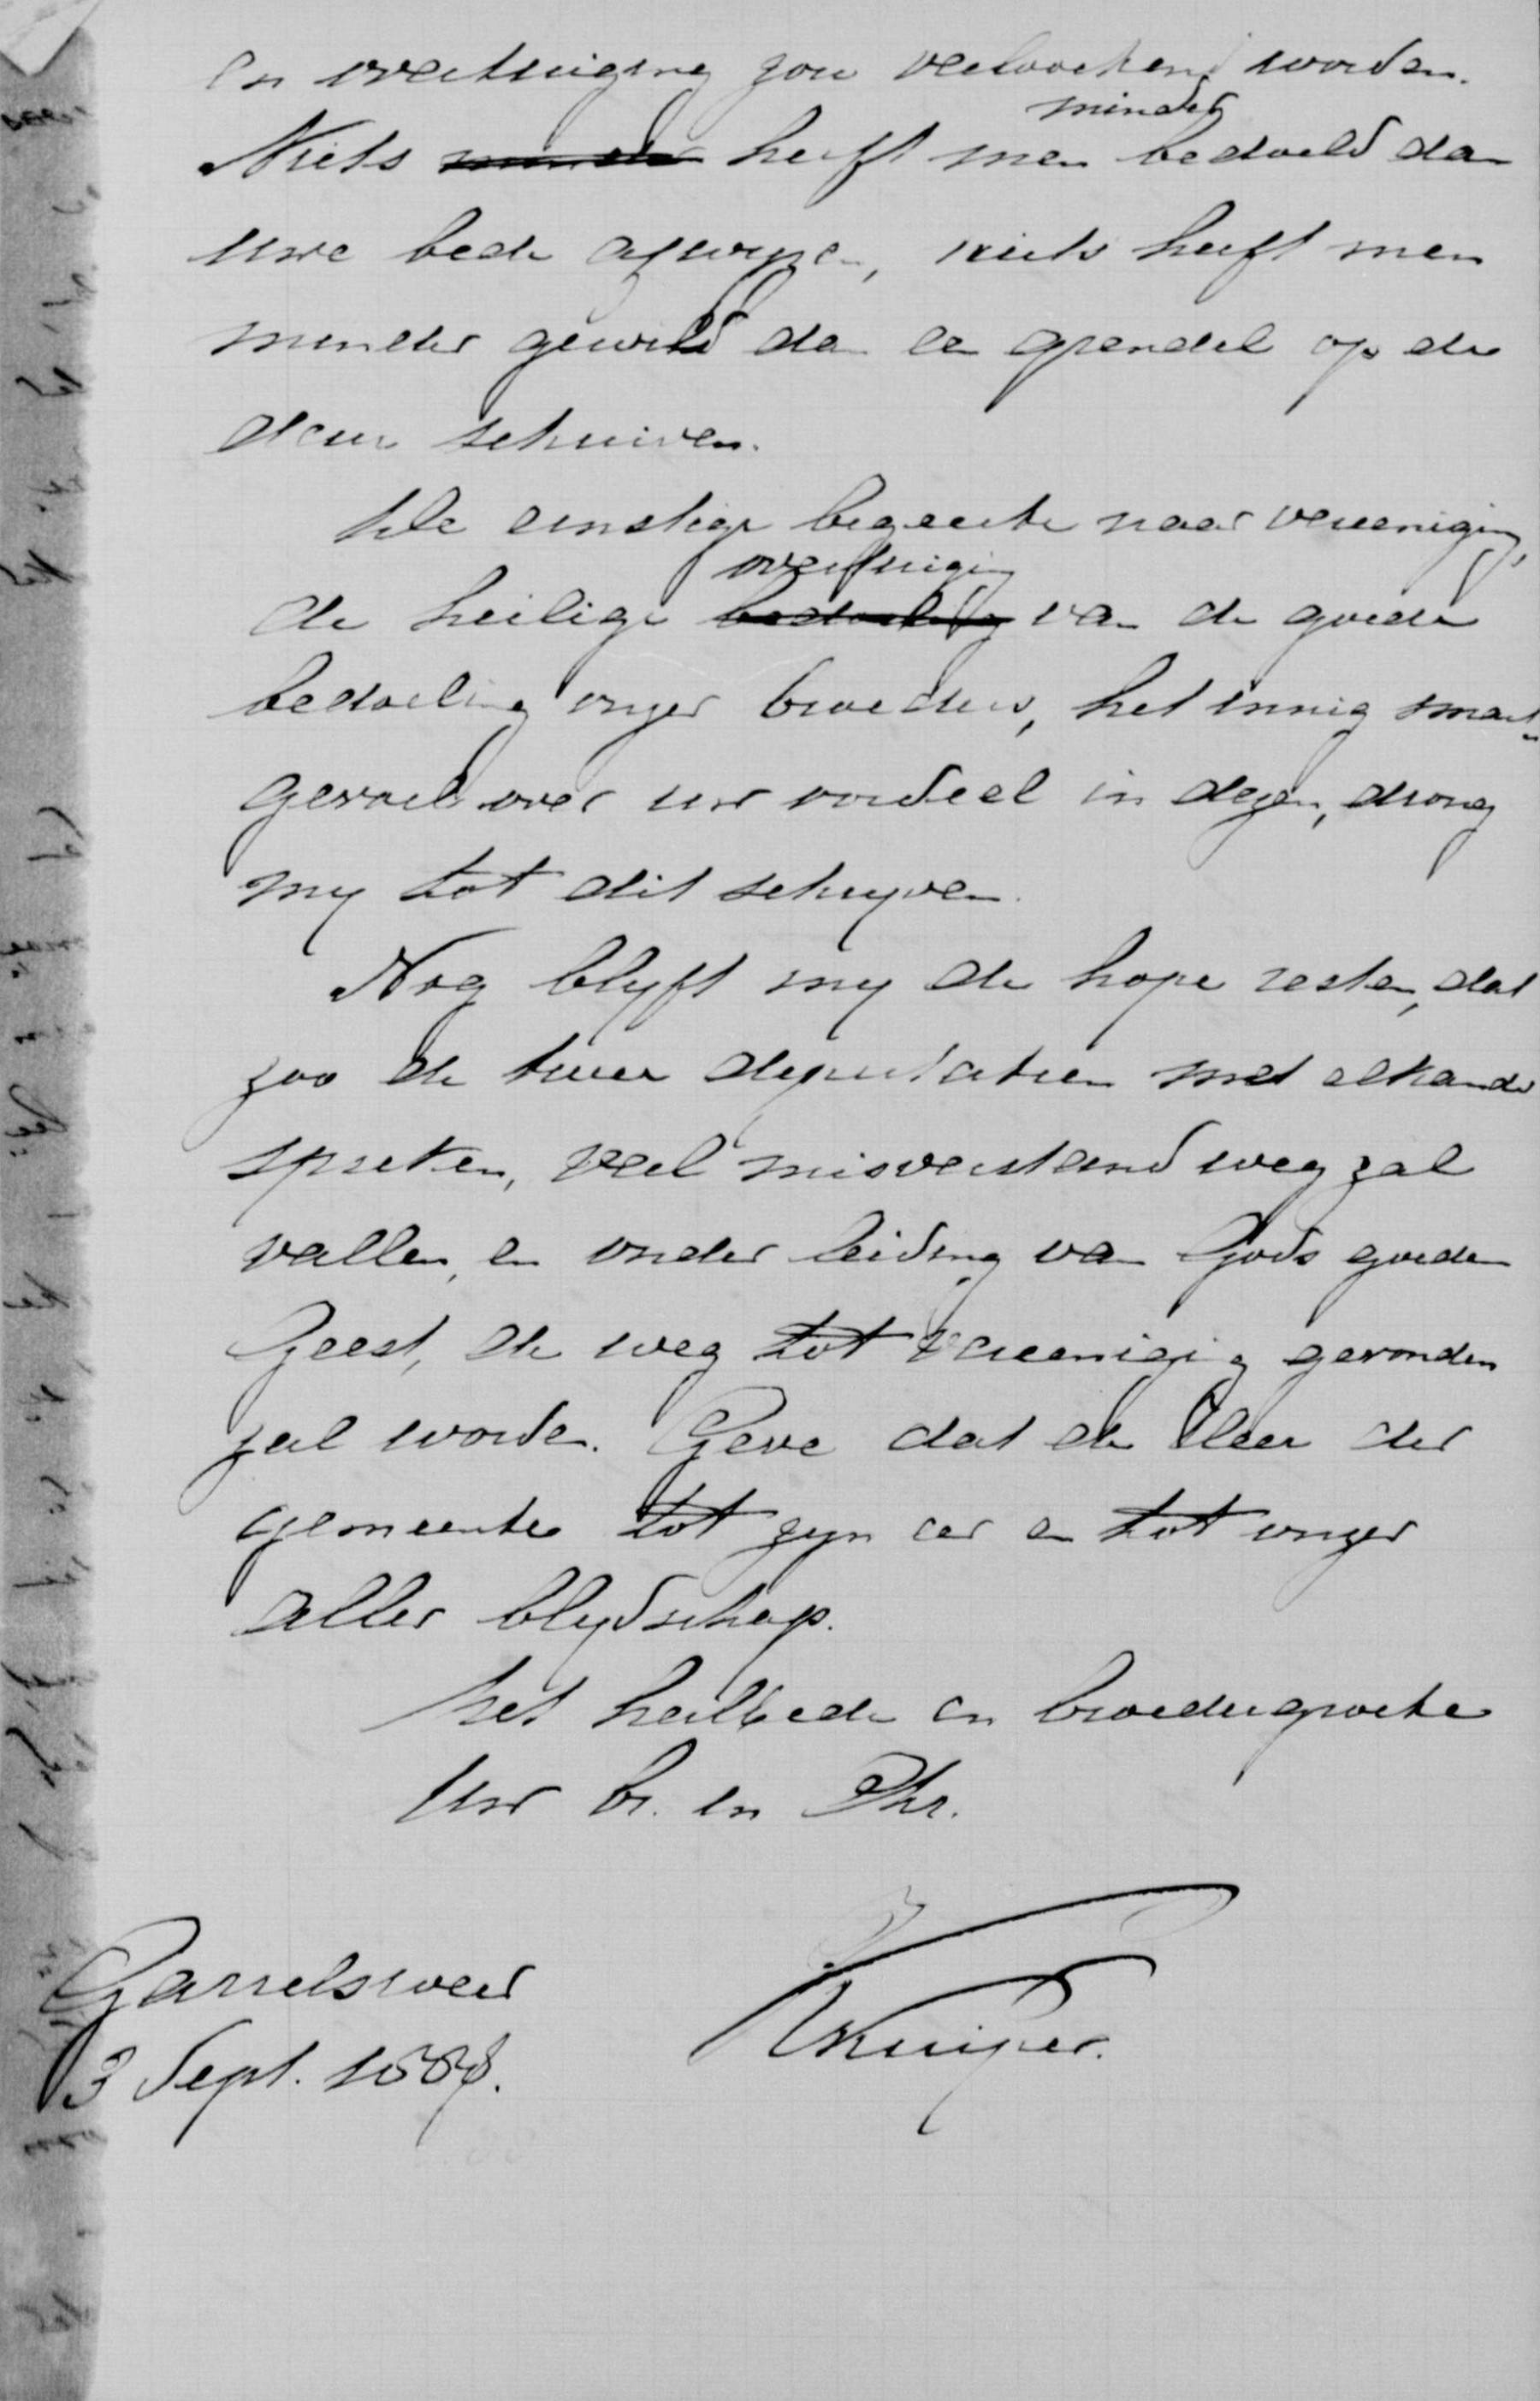 en overtuiging zou verloochend worden.
minder
Niets minder heeft men bedoeld dan
uwe bede afwijzen, niets heeft men
minder gewild dan een grendel op de
deur schuiven.
De ernstige begeerte naar vereeniging,
overtuiging
de heilige bedoeling van de goede
bedoeling onzer broeders, het innig smart-
gevoel over uw oordeel in dezen, drong
mij tot dit schrijven.
Nog blijft mij de hope resten, dat
zoo de twee deputatien met elkander
spreken, veel misverstand weg zal
vallen, en onder leiding van Gods goeden
Geest, de weg tot vereeniging gevonden
zal worden. Geve dat de Heer der
gemeente tot zijn eer en tot onzer
aller blijdschap.
Met heilbede en broedergroete
Uw br. in Chr.
Garrelsweer
3 Sept. 1888.
Kuiper.